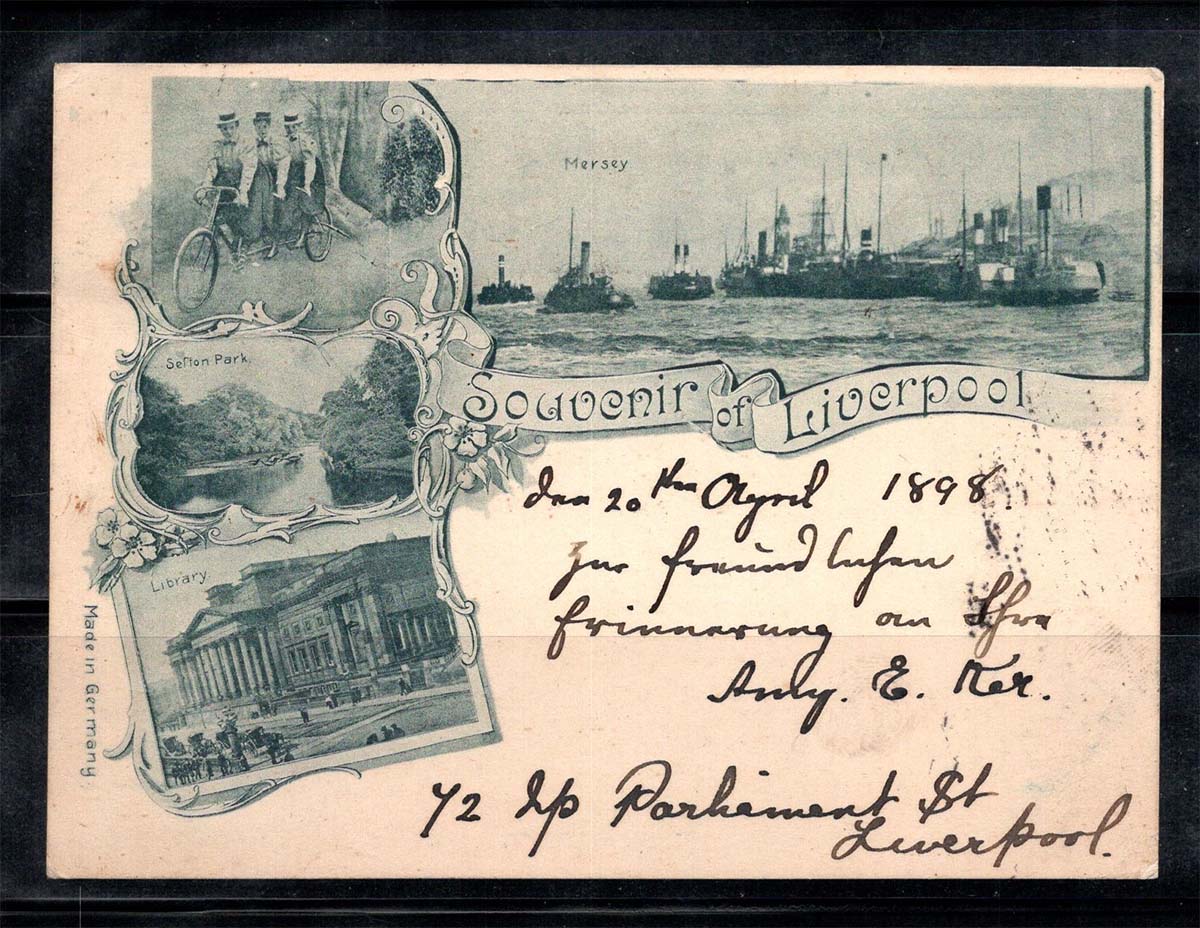 Mersey
Sefton Park.
Souvenir of Liverpool
Library.
Made in Germany
den 20ten April 1898.
Zur freundlichen
Erinnerung an Ihre
Amy. E. Ker.
72 Up Parliament St
Liverpool.